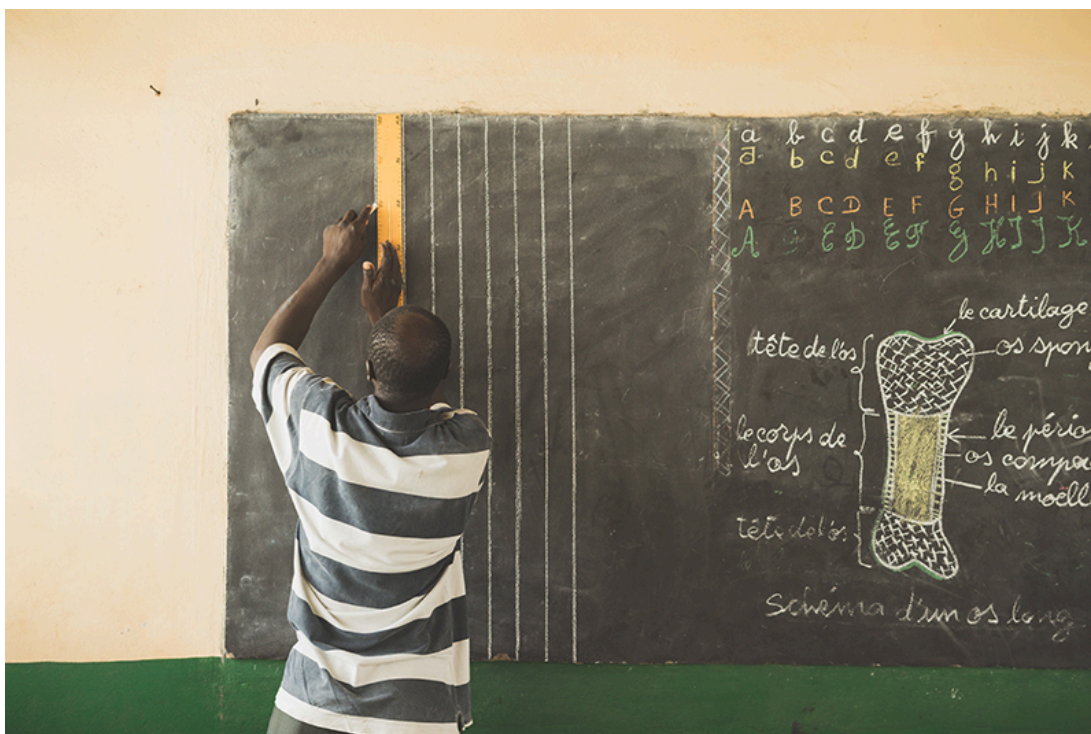 a b c d e f g h i j k
a b c d e f g h i j k
A B C D E F G H I J K
A C D E F G H I J K
le cartilage
tête de l'os
os spon
le corps de
l'os
le pério
os compa
la moëll
tête de l'os
Schéma d'un os long